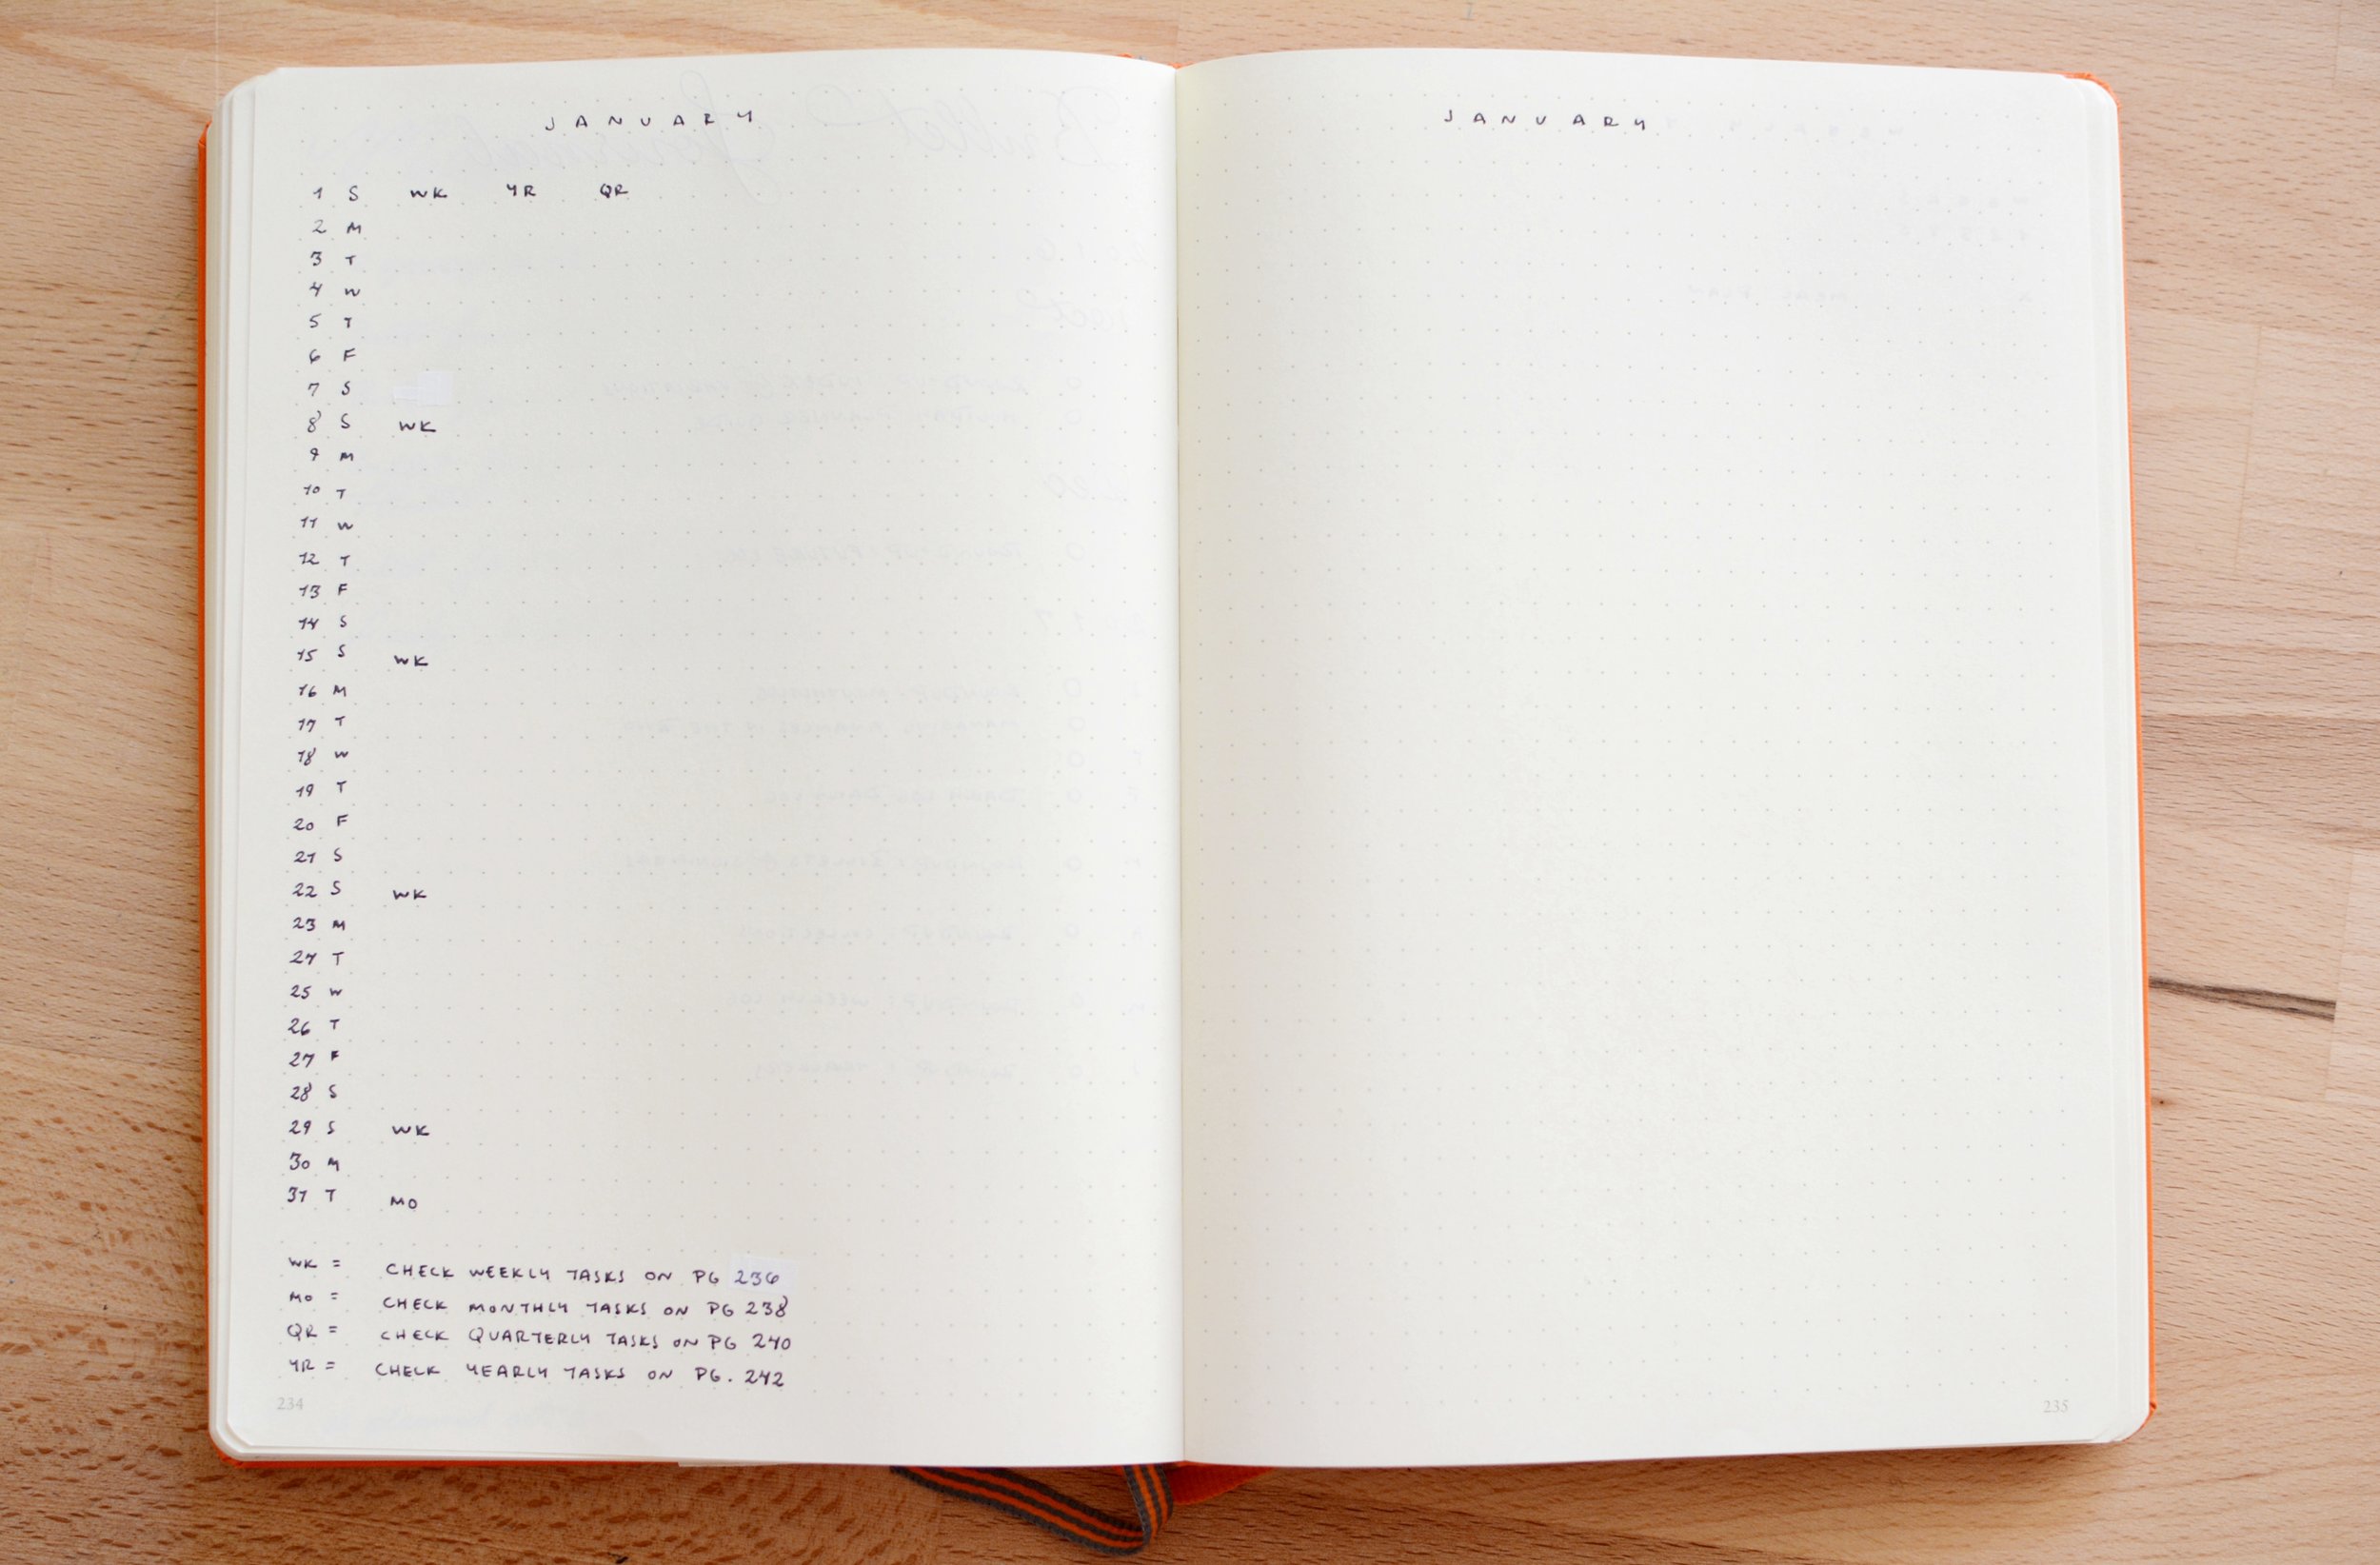 JANUARY
1 S WK YR QR
2 M
3 T
4 W
5 T
6 F
7 S
8 S WK
9 M
10 T
11 W
12 T
13 F
14 S
15 S WK
16 M
17 T
18 W
19 T
20 F
21 S
22 S WK
23 M
24 T
25 W
26 T
27 F
28 S
29 S WK
30 M
31 T MO
WK = CHECK WEEKLY TASKS ON PG 236
MO = CHECK MONTHLY TASKS ON PG 238
QR = CHECK QUARTERLY TASKS ON PG 240
YR = CHECK YEARLY TASKS ON PG. 242
234
JANUARY
235